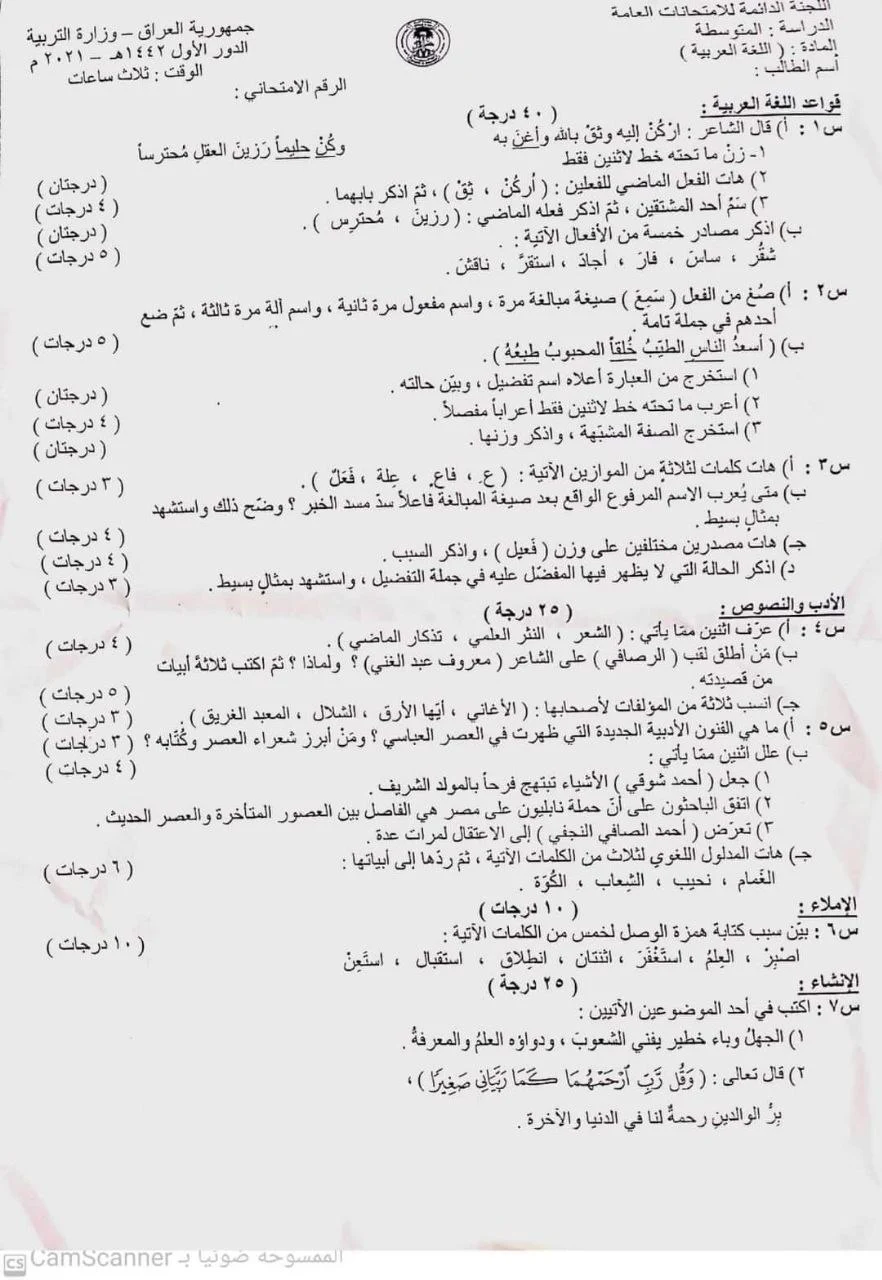 اللجنة الدائمة للامتحانات العامة
الدراسة : المتوسطة
المادة : ( اللغة العربية )
أسم الطالب :
جمهورية العراق – وزارة التربية
الدور الأول ١٤٤٢هـ – ٢٠٢١ م
الوقت : ثلاث ساعات
الرقم الامتحاني :
قواعد اللغة العربية : ( ٤٠ درجة )
س١ : أ) قال الشاعر : ارْكُنْ إليه وثقْ بالله وأغنَ به وكُنْ حليماً رَزينَ العقلِ مُحترساً
١- زنْ ما تحته خط لاثنين فقط ( درجتان )
٢) هات الفعل الماضي للفعلين : ( اُركُنْ ، ثِقْ ) ، ثمّ اذكر بابهما . ( ٤ درجات )
٣) سَمِّ أحد المشتقين ، ثمّ اذكر فعله الماضي : ( رزينَ ، مُحترِس ) . ( درجتان )
ب) اذكر مصادر خمسة من الأفعال الآتية : . ( ٥ درجات )
شقُر ، ساسَ ، فارَ ، أجادَ ، استقرَّ ، ناقشَ .
س٢ : أ) صُغ من الفعل ( سَمِعَ ) صيغة مبالغة مرة ، واسم مفعول مرة ثانية ، واسم آلة مرة ثالثة ، ثمّ ضع
أحدهم في جملة تامة . ( ٥ درجات )
ب) ( أسعدُ الناسِ الطيّبُ خُلقاً المحبوبُ طبعُهُ ) .
١) استخرج من العبارة أعلاه اسم تفضيل ، وبيّن حالته . ( درجتان )
٢) أعرب ما تحته خط لاثنين فقط أعراباً مفصلاً . ( ٤ درجات )
٣) استخرج الصفة المشبّهة ، واذكر وزنها . ( درجتان )
س٣ : أ) هات كلمات لثلاثةٍ من الموازين الآتية : ( عِ ، فاعٍ ، عِلة ، فَعَلٌ ) . ( ٣ درجات )
ب) متى يُعرب الاسم المرفوع الواقع بعد صيغة المبالغة فاعلاً سدّ مسد الخبر ؟ وضّح ذلك واستشهد
بمثالٍ بسيط . ( ٤ درجات )
جـ) هات مصدرين مختلفين على وزن ( فَعيل ) ، واذكر السبب . ( ٤ درجات )
د) اذكر الحالة التي لا يظهر فيها المفضّل عليه في جملة التفضيل ، واستشهد بمثالٍ بسيط . ( ٣ درجات )
الأدب والنصوص : ( ٢٥ درجة )
س٤ : أ) عرّف اثنين ممّا يأتي : ( الشعر ، النثر العلمي ، تذكار الماضي ) . ( ٤ درجات )
ب) مَنْ أطلق لقب ( الرصافي ) على الشاعر ( معروف عبد الغني) ؟ ولماذا ؟ ثمّ اكتب ثلاثةَ أبيات
من قصيدته . ( ٥ درجات )
جـ) انسب ثلاثة من المؤلفات لأصحابها : ( الأغاني ، أيّها الأرق ، الشلال ، المعبد الغريق ) . ( ٣ درجات )
س٥ : أ) ما هي الفنون الأدبية الجديدة التي ظهرت في العصر العباسي ؟ ومَنْ أبرز شعراء العصر وكُتّابه ؟ ( ٣ درجات )
ب) علل اثنين ممّا يأتي : ( ٤ درجات )
١) جعل ( أحمد شوقي ) الأشياء تبتهج فرحاً بالمولد الشريف .
٢) اتفق الباحثون على أنّ حملة نابليون على مصر هي الفاصل بين العصور المتأخرة والعصر الحديث .
٣) تعرّض ( أحمد الصافي النجفي ) إلى الاعتقال لمرات عدة .
جـ) هات المدلول اللغوي لثلاث من الكلمات الآتية ، ثم ردّها إلى أبياتها : ( ٦ درجات )
الغَمام ، نحيب ، الشِعاب ، الكُوّة .
الإملاء : ( ١٠ درجات )
س٦ : بيّن سبب كتابة همزة الوصل لخمس من الكلمات الآتية : ( ١٠ درجات )
اصْبِرْ ، العِلمُ ، استَغْفَرَ ، اثنتان ، انطِلاق ، استقبال ، استَعِنْ
الإنشاء : ( ٢٥ درجة )
س٧ : اكتب في أحد الموضوعين الآتيين :
١) الجهلُ وباء خطير يفني الشعوبَ ، ودواؤه العلمُ والمعرفةُ .
٢) قال تعالى : ( وَقُل رَّبِّ ٱرْحَمْهُمَا كَمَا رَبَّيَانِي صَغِيرًا ) ،
بِرُّ الوالدينِ رحمةٌ لنا في الدنيا والآخرة .
الممسوحة ضوئيا بـ CamScanner
CS